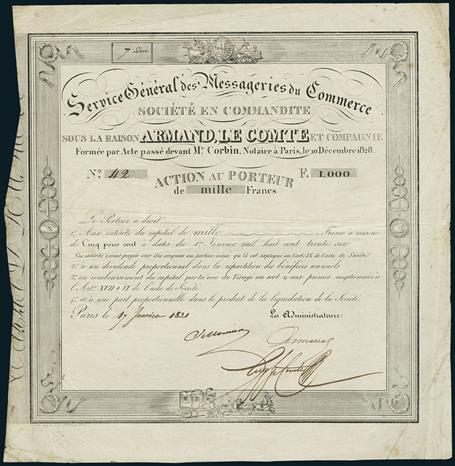 7 Série
Service Général des Messageries du Commerce
SOCIÉTÉ EN COMMANDITE
SOUS LA RAISON ARMAND, LE COMTE ET COMPAGNIE
Formée par Acte passé devant Mr. Corbin, Notaire à Paris, le 10 Décembre 1828.
No. 42 ACTION AU PORTEUR F. 1,000
de mille Francs
Le Porteur a droit
1o. Aux intérêts du capital de mille Francs à raison
de Cinq pour cent à dater du 1er Janvier mil huit cent trente
Ces intérêts seront payés sur des coupons au porteur ainsi qu'il est expliqué en l'art. IX de l'acte de Société
2o. à un dividende proportionnel dans la répartition des bénéfices annuels
au remboursement du capital par la voie du tirage au sort & aux primes mentionnées à
l'Art. XVII & VI de l'acte de Société
et à une part proportionnelle dans le produit de la liquidation de la Société.
Paris le 1er Janvier 1831 Les Administrateurs: